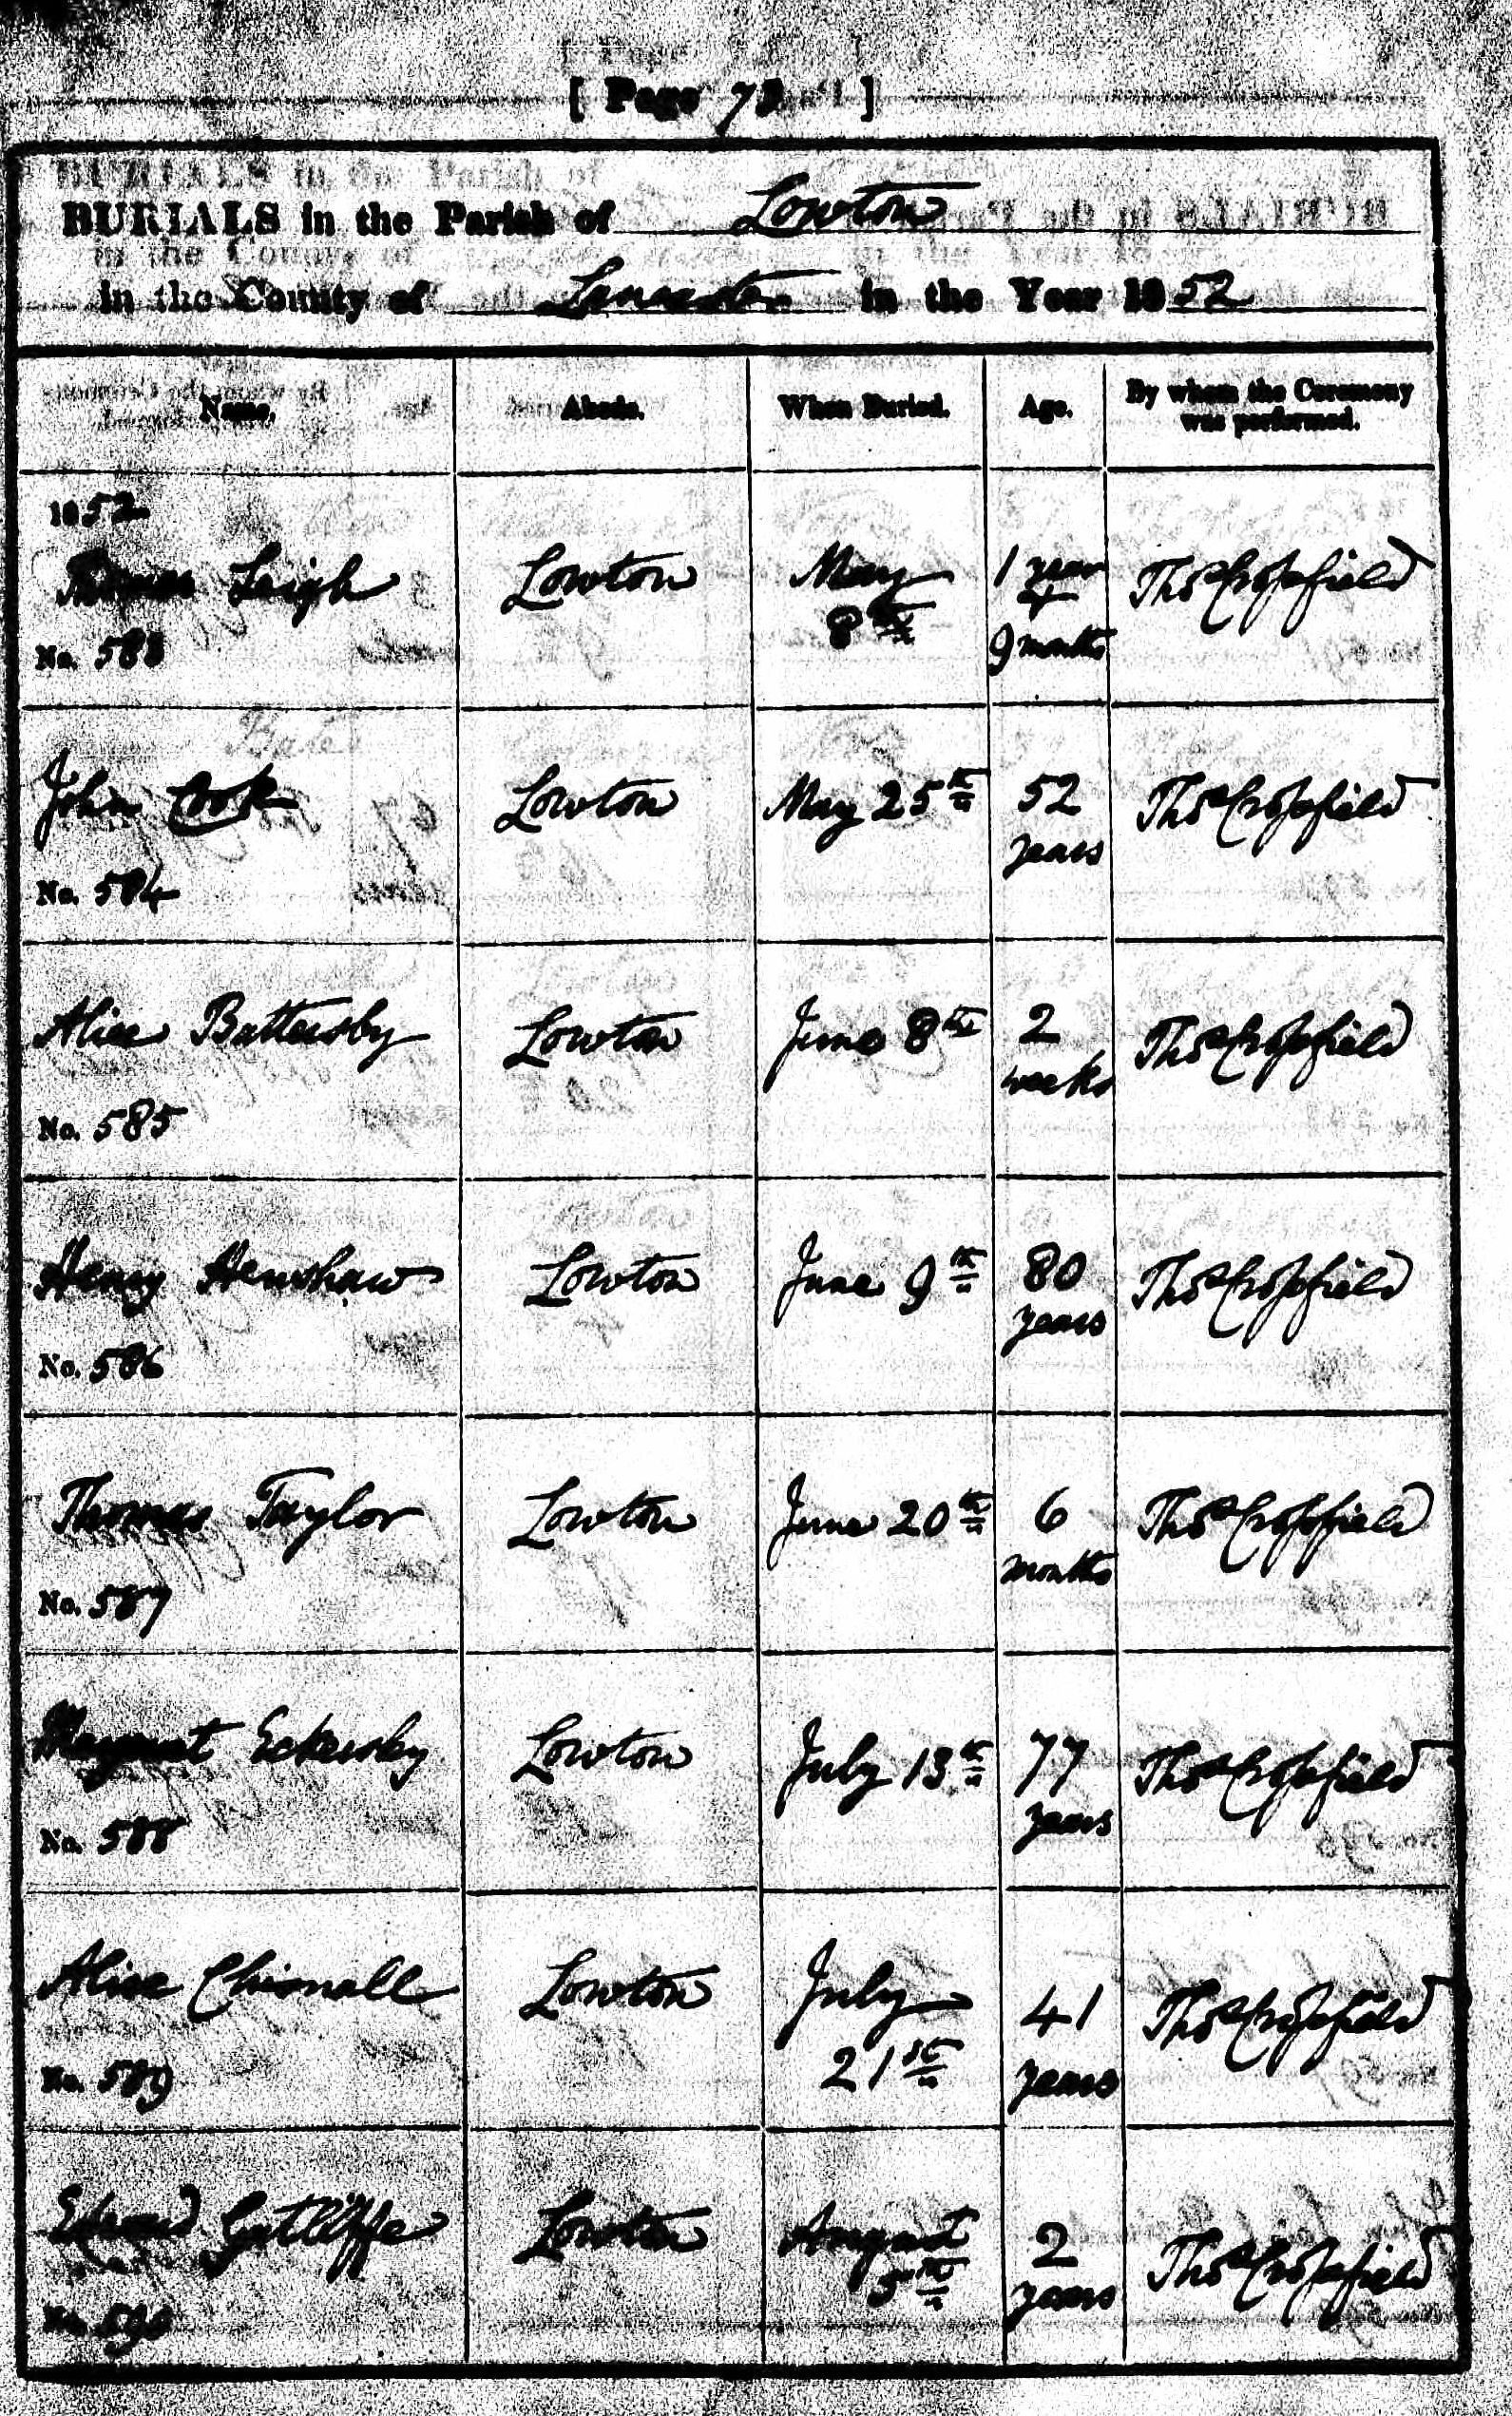 [ Page 73 ]
BURIALS in the Parish of Lowton
in the County of Lancaster in the Year 1852
Name. Abode. When Buried. Age. By whom the Ceremony was performed.
1852
Thomas Leigh Lowton May 8th 1 year & 9 months Thos Cropfield
No. 583
John Cook Lowton May 25th 52 years Thos Cropfield
No. 584
Alice Battersby Lowton June 8th 2 weeks Thos Cropfield
No. 585
Henry Henshaw Lowton June 9th 80 years Thos Cropfield
No. 586
Thomas Taylor Lowton June 20th 6 months Thos Cropfield
No. 587
Margaret Eckersley Lowton July 13th 77 years Thos Cropfield
No. 588
Alice Chisnall Lowton July 21st 41 years Thos Cropfield
No. 589
Edward Gatliffe Lowton August 5th 2 years Thos Cropfield
No. 590